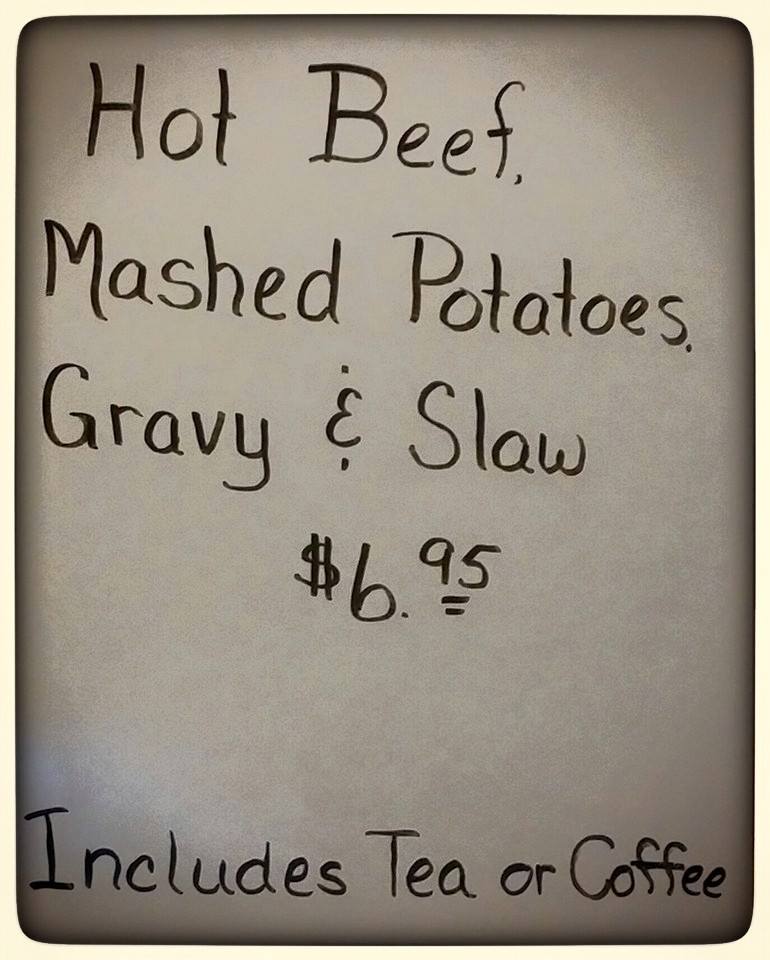 Hot Beef,
Mashed Potatoes,
Gravy & Slaw
$6.95
Includes Tea or Coffee